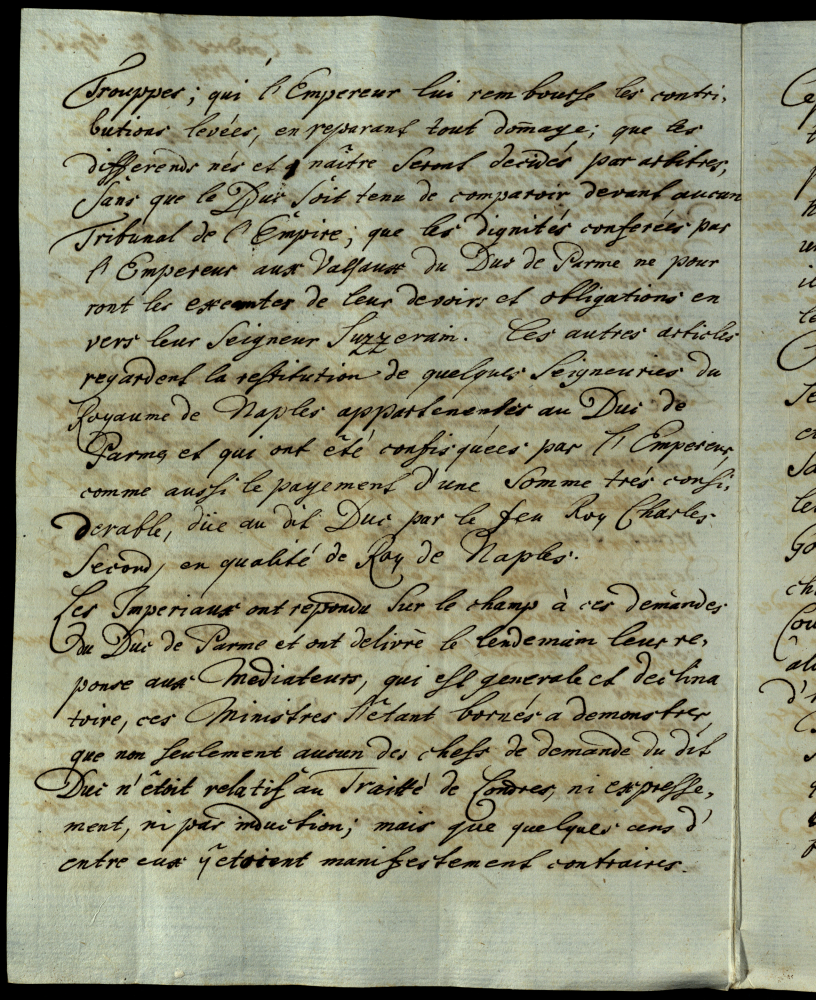 Trouppes; qui l'Empereur lui rembourse les contri-
butions levées, en reparant tout domage; que les
differends nés et a naître seront decidés par arbitres,
sans que le Duc soit tenu de comparoir devant aucun
Tribunal de l'Empire; que les dignités conferées par
l'Empereur aux Vassaux du Duc de Parme ne pour
ront les exemter de leur devoirs et obligations en
vers leur Seigneur Suzzerain. Les autres articles
regardent la restitution de quelques Seigneuries du
Royaume de Naples appartenentes au Duc de
Parma et qui ont été confisquées par l'Empereur,
comme aussi le payement d'une somme trés consi-
derable, düe au dit Duc par le feu Roy Charles
Second, en qualité de Roy de Naples.
Les Imperiaux ont repondu sur le champ à ces demandes
du Duc de Parme et ont delivré le lendemain leur re-
ponse aux Mediateurs, qui est generale et declina
toire, ces Ministres s'étant bornés a demonstrer,
que non seulement aucun des chefs de demande du dit
Duc n'étoit relatif au Traitté de Londres, ni expresse-
ment, ni par induction; mais que quelques uns d'
entre eux y etoient manifestement contraires.